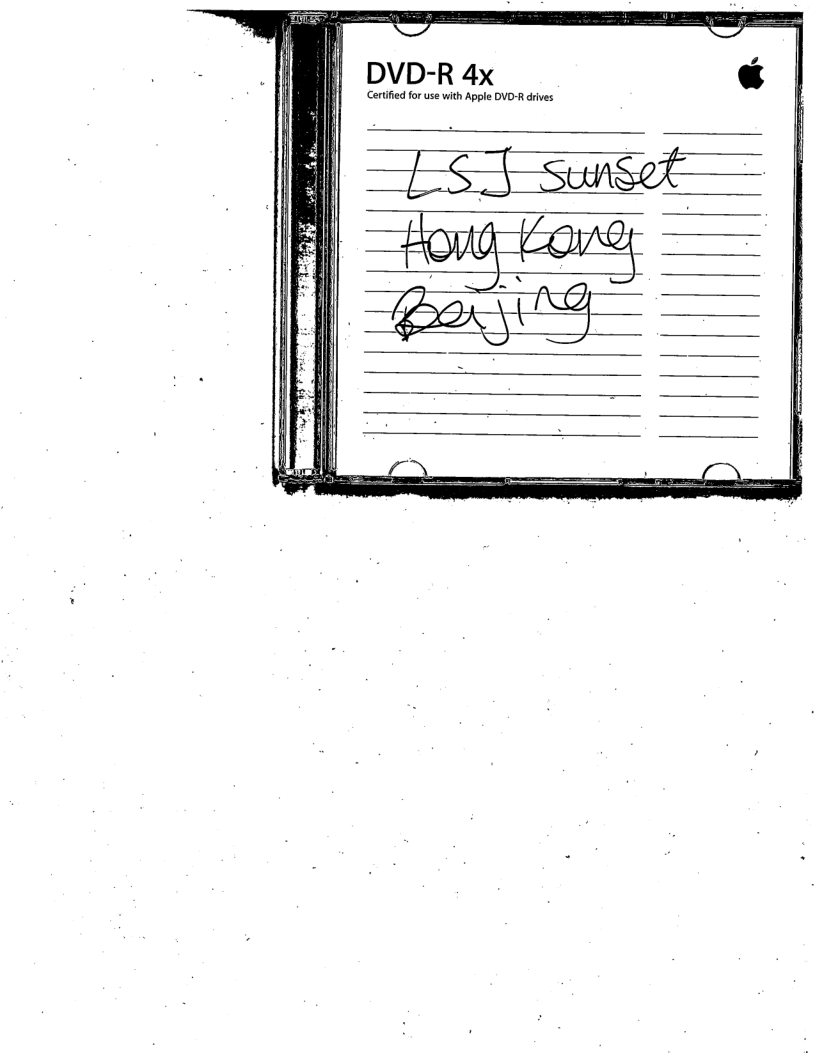 DVD-R 4x
Certified for use with Apple DVD-R drives
LSJ sunset
Hong Kong
Beijing